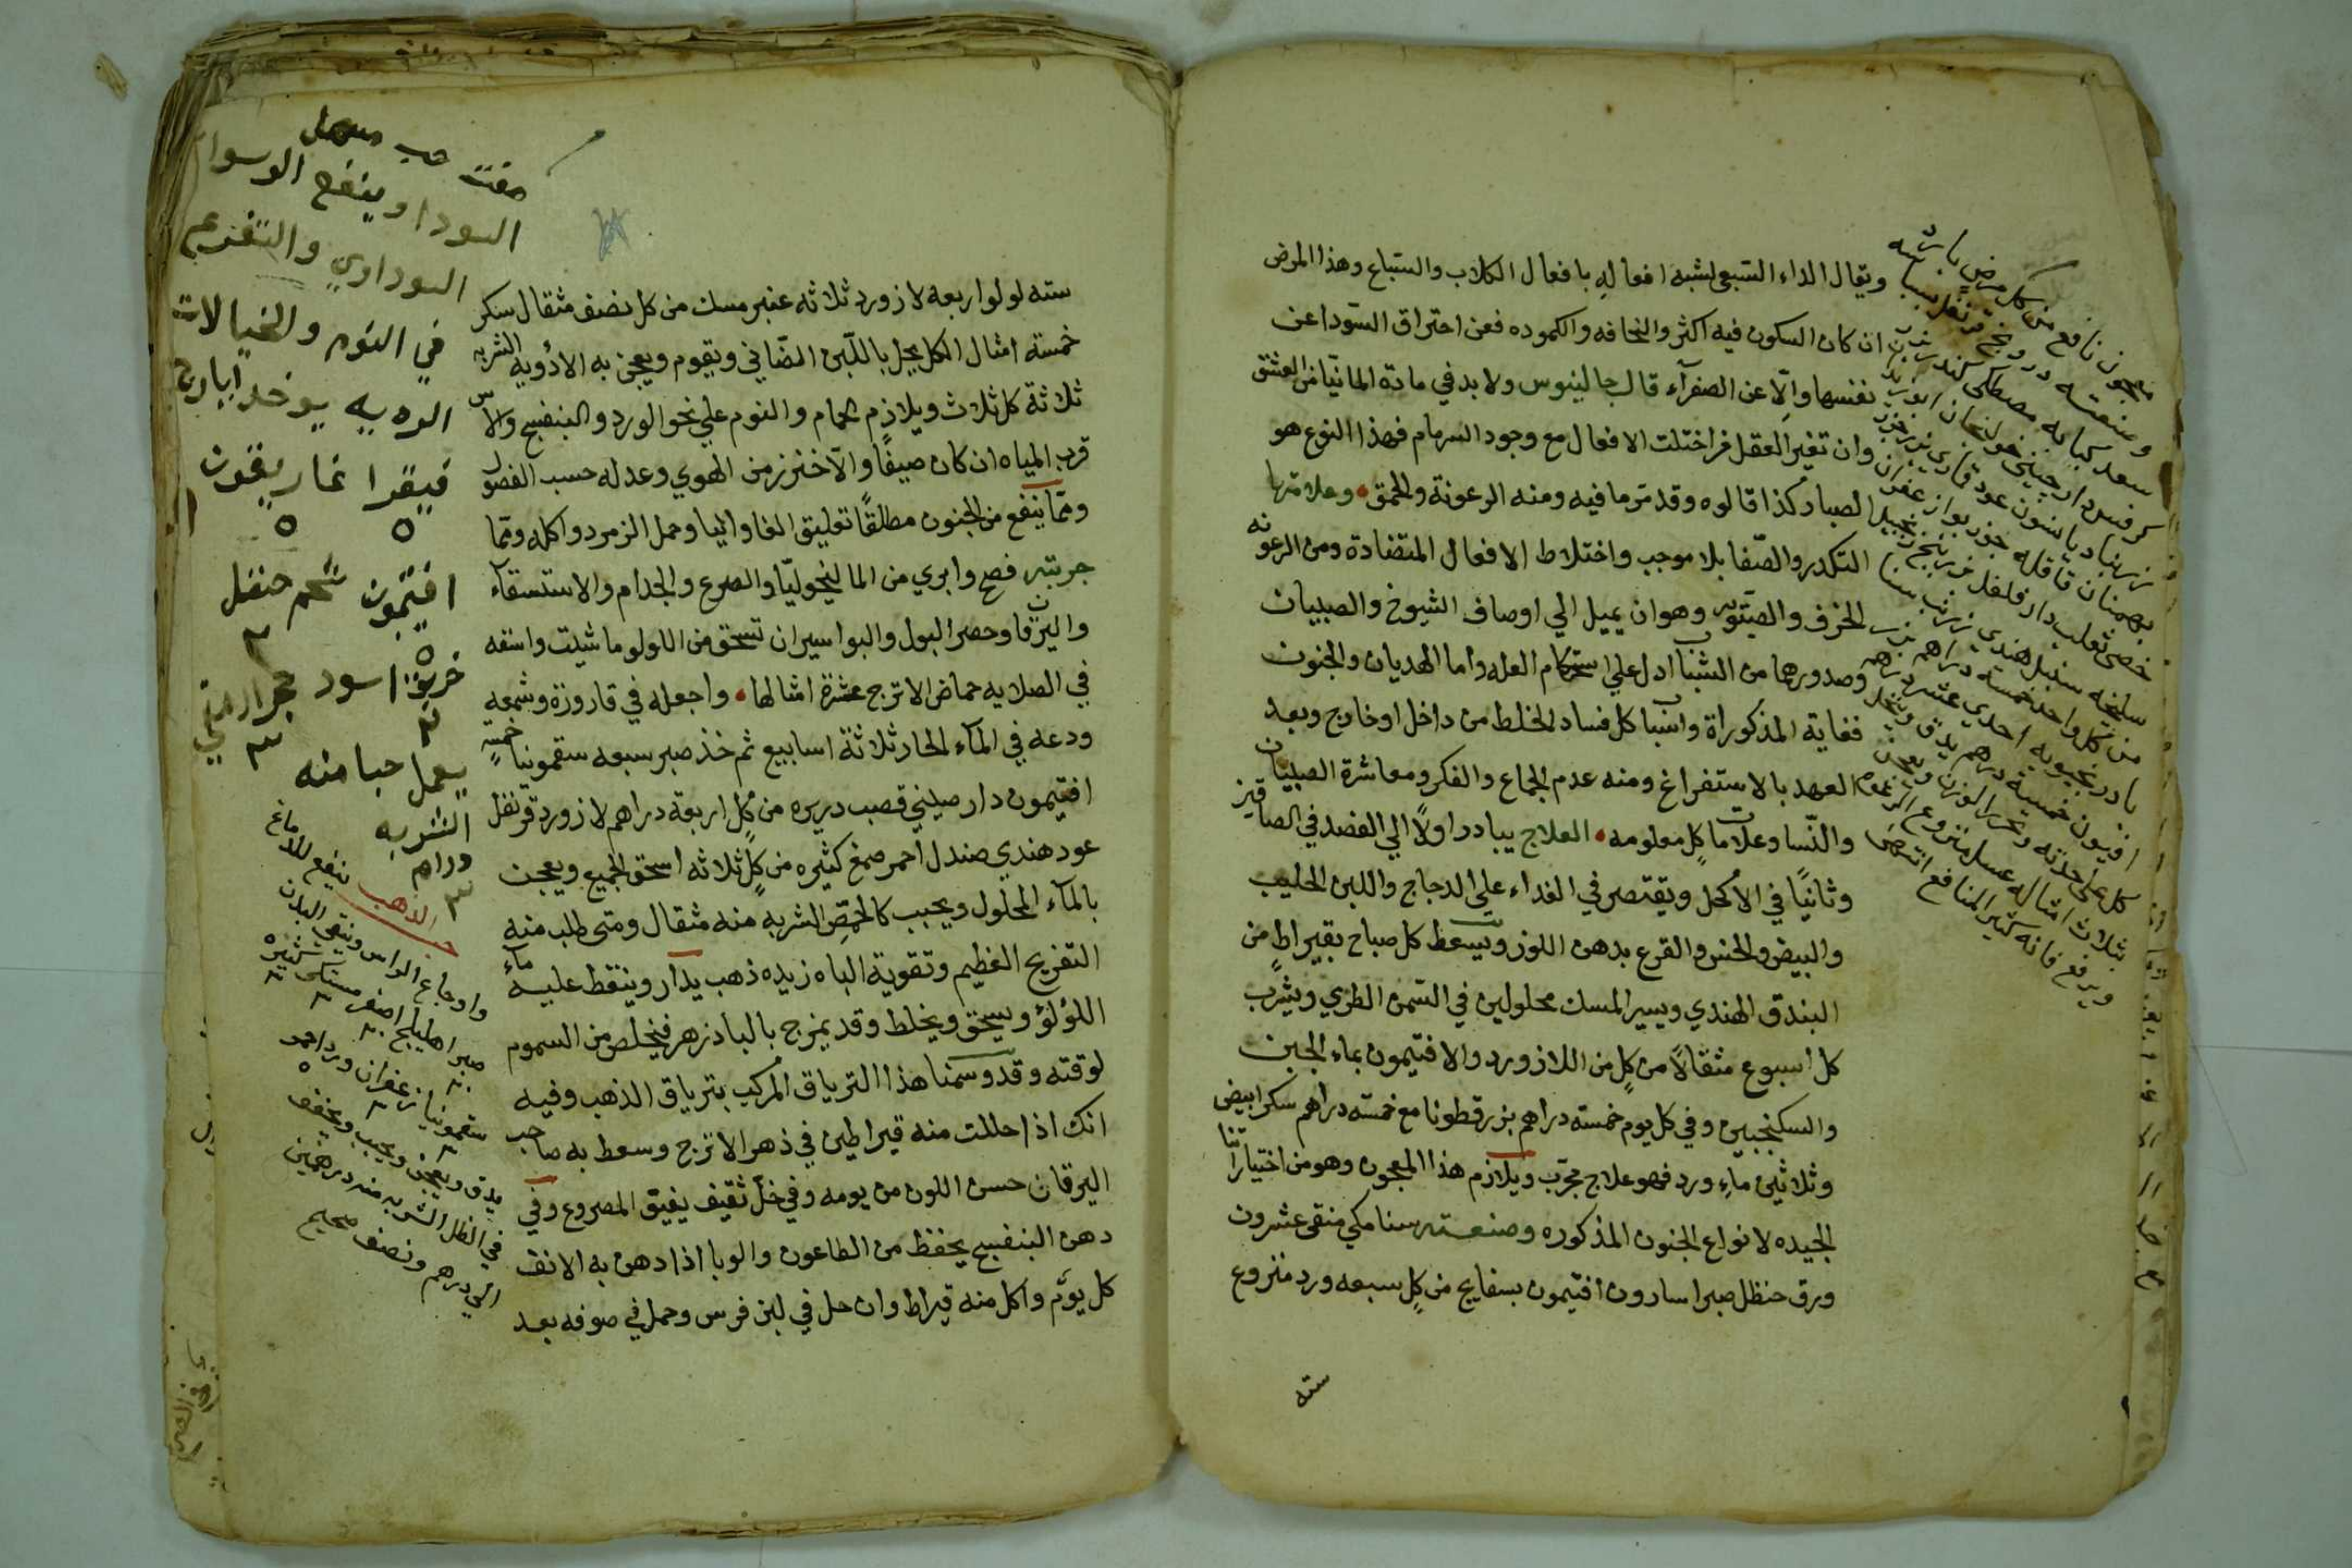 ويقال الداء السبعي لشبه افعاله بافعال الكلاب والسباع وهذا المرض
ان كان السكون فيه اكثر والنحافه والكموده فعن احتراق السّودا عن
نفسها والّا عن الصفرآء قال جالينوس ولا بد في مادة المانيا من العشق
وان تغير العقل فراختلت الافعال مع وجود السرسام فهذا النوع هو
لصبار كذا قالوه وقد مرّ ما فيه ومنه الرعونة والحمق وعلامتها
التكدر والصّفا بلا موجب واختلاط الافعال المتضادة ومن الرعونه
الخرف والصبّوبه وهو ان يميل الي اوصاف الشيوخ والصبيان
وصدورها من الشباب ادل علي استحكام العله واما الهديان والجنون
فغاية المذكوراة واسبابـ كل فساد الخلط من داخل او خارج وبعد
العهد بالاستفراغ ومنه عدم الجماع والفكر ومعاشرة الصبيان
والنّسا وعلامات كل معلومه العلاج يبادر اولاً الي الفصد في الصافين
وثانيًا في الاكحل ويقتصر في الغداء علي الدجاج واللبن الحليب
والبيض والخس والقرع بدهن اللوز ويسعط كل صباح بقيراط من
البندق الهندي ويسير المسك محلولين في السّمن الطري ويشرب
كل اسبوع مثقالًا من كل من اللازورد والافتيمون بماء الجبن
والسكنجبين وفي كل يوم خمسته دراهم بزرقطونا مع خمسته دراهم سكر ابيض
وثلاثين ماء ورد فهو علاج مجرّب ويلازم هذا المعجون وهو من اختياراتنا
الجيده لانواع الجنون المذكوره وصنعته سنا مكي منقى عشرون
ورق حنظل صبر اسارون افتيمون بسفايج من كل سبعه ورد منزوع
سته
معجون نافع من كل مرض بارد
وصنعته درونج قرنفل بسباسه
سعد كبابه مصطكي كندر
كرفس دارچيني خولنجان
خصي ثعلب دارفلفل زرنب زنجبيل
سليخه سنبل هندي
من كل واحد خمسة دراهم
بادرنجبويه احدي عشر درهم
افيون خمسة دراهم يدق وينخل
كل علي حدته
بثلاث امثاله عسل منزوع الرغوه
ويرفع فانه كثير المنافع
سته لولو اربعه لازورد ثلاثه عنبر مسك من كل نصف مثقال سكر
خمسته امثال الكل يحل باللّبن الضّاني ويقوم ويعجن به الادويه الشربه
ثلاثة كل ثلاث ويلازم الحمام والنوم علي نحو الورد والبنفسج والاس
قرب المياه ان كان صيفًا والّا خنزر من الهوي وعدله حسب الفصول
وممّا ينفع من الجنون مطلقًا تعليق الفاوانيا وحمل الزمرد واكله وممّا
جربته فصح وابري من الماليخوليّا والصرع والجدام والاستسقآء
واليرقان وحصر البول والبواسير ان تسحق من اللولو ما شيت واسقه
في الصلايه حماض الاترج عشرة امثالها واجعله في قارورة وشمعه
ودعه في المآء الحار ثلاثة اسابيع ثم خذ صبر سبعه سقمونيا خمسة
افتيمون دارصيني قصب دريره من كل اربعة دراهم لازورد قرنفل
عود هندي صندل احمر صمغ كثيره من كل ثلاثه اسحق الجميع ويعجن
بالمآء المحلول ويحبب كالحمّص الشربه منه مثقال ومتى طلب منه
التفريح العظيم وتقوية الباه زيده ذهب يدار وينقط عليه مآء
اللؤلؤ ويسحق ويخلط وقد يمزج بالبادزهر فيخلص من السموم
لوقته وقد وسمنا هذا الترياق المركب بترياق الذهب وفيه
انك اذا حللت منه قيراطين في ذهر الاترج وسعط به صاحب
اليرقان حسن اللون من يومه وفي خلّ ثقيف يفيق المصروع وفي
دهن البنفسج يحفظ من الطاعون والوبا اذا دهن به الانف
كل يوم واكل منه قيراط وان حل في لبن فرس وحمل في صوفه بعد
صفت حب مسهل
السودا وينفع الوسواس
السوداوي والتفزع
في النوم والخيالات
الرديه يوخد ايارج
فيقرا غاريقون
٥ ٥
افتيمون شحم حنظل
٥ ٢
خربق اسود حجر ارمني
٢ ٣
يعمل حبا منه
الشربه
دراهم
٣
حب الذهب ينفع للدماغ
واوجاع الراس وينقي البدن
صبر اهليلج اصفر مستكى كثيره
سقمونيا زعفران ورد احمر
يدق ويعجن ويحبب ويجفف
في الظل الشربه منه درهمين
الي درهم ونصف صحيح